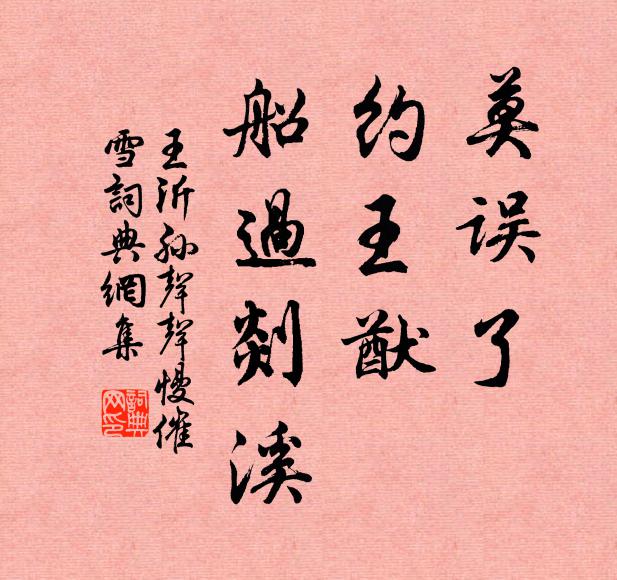 莫误了
约王猷
船過剡溪
王沂孙聲聲慢催
雪詞典網集
詞典网印